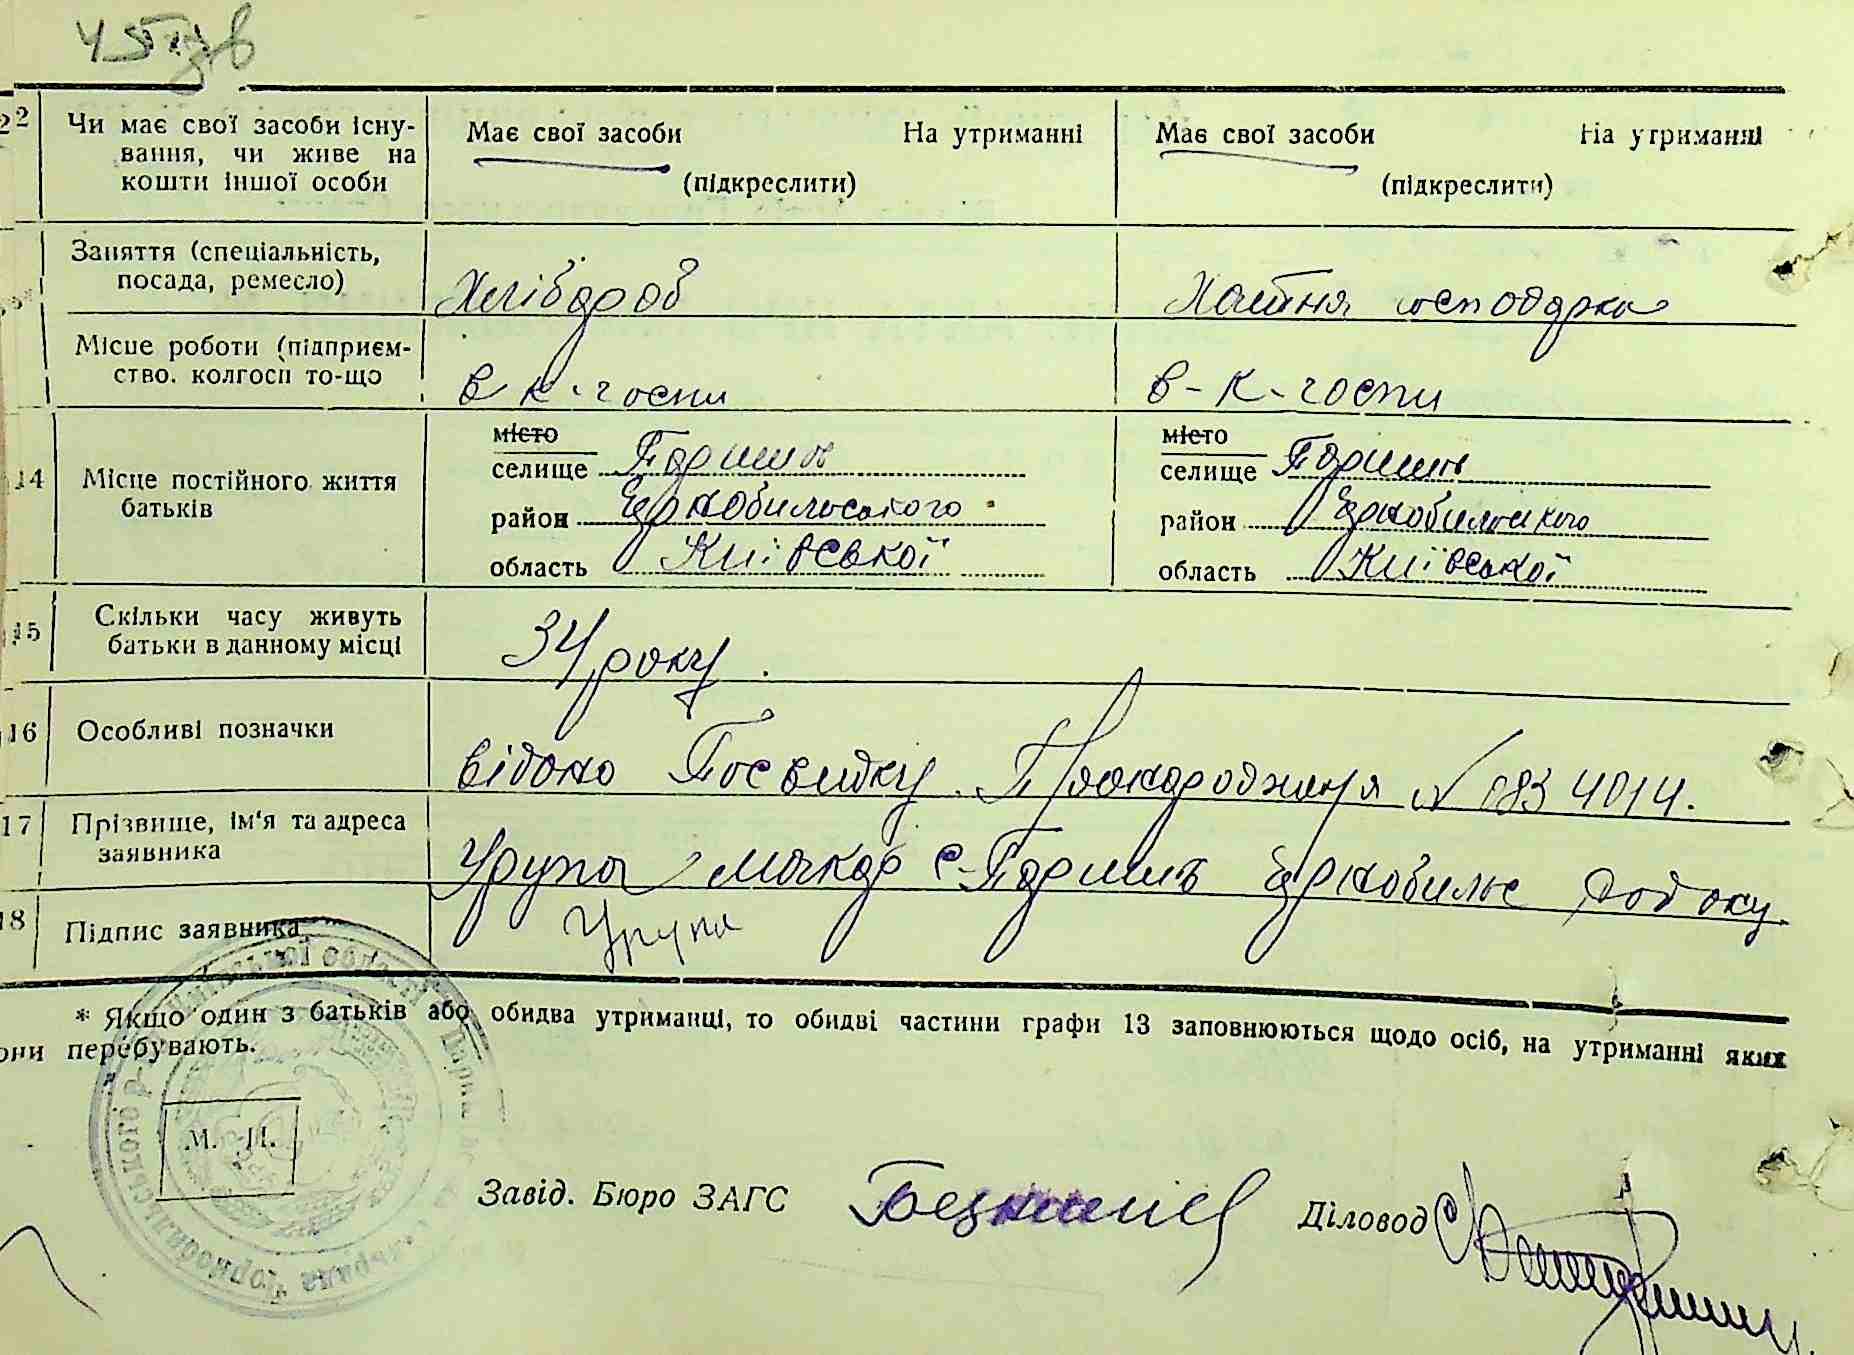 22 Чи має свої засоби існу- Має свої засоби На утриманні Має свої засоби На утриманні
вання, чи живе на
кошти іншої особи (підкреслити) (підкреслити)
Заняття (спеціальність,
посада, ремесло) Хлібороб Хатня господарка
Місце роботи (підприєм-
ство, колгосп то-що в к-госпи в-к-госпи
місто місто
14 Місце постійного життя селище Паришів селище Паришів
батьків район Чорнобильського район Чорнобильського
область Київської область Київської
15 Скільки часу живуть
батьки в данному місці 34 року.
16 Особливі позначки
видано Посвідку. Про народження № 0834014.
17 Прізвище, ім'я та адреса
заявника Урупа Макар с-Паришів Чорнобильс району
18 Підпис заявника Урупа
* Якщо один з батьків або обидва утриманці, то обидві частини графи 13 заповнюються щодо осіб, на утриманні яких
они перебувають.
М. П.
Завід. Бюро ЗАГС Діловод